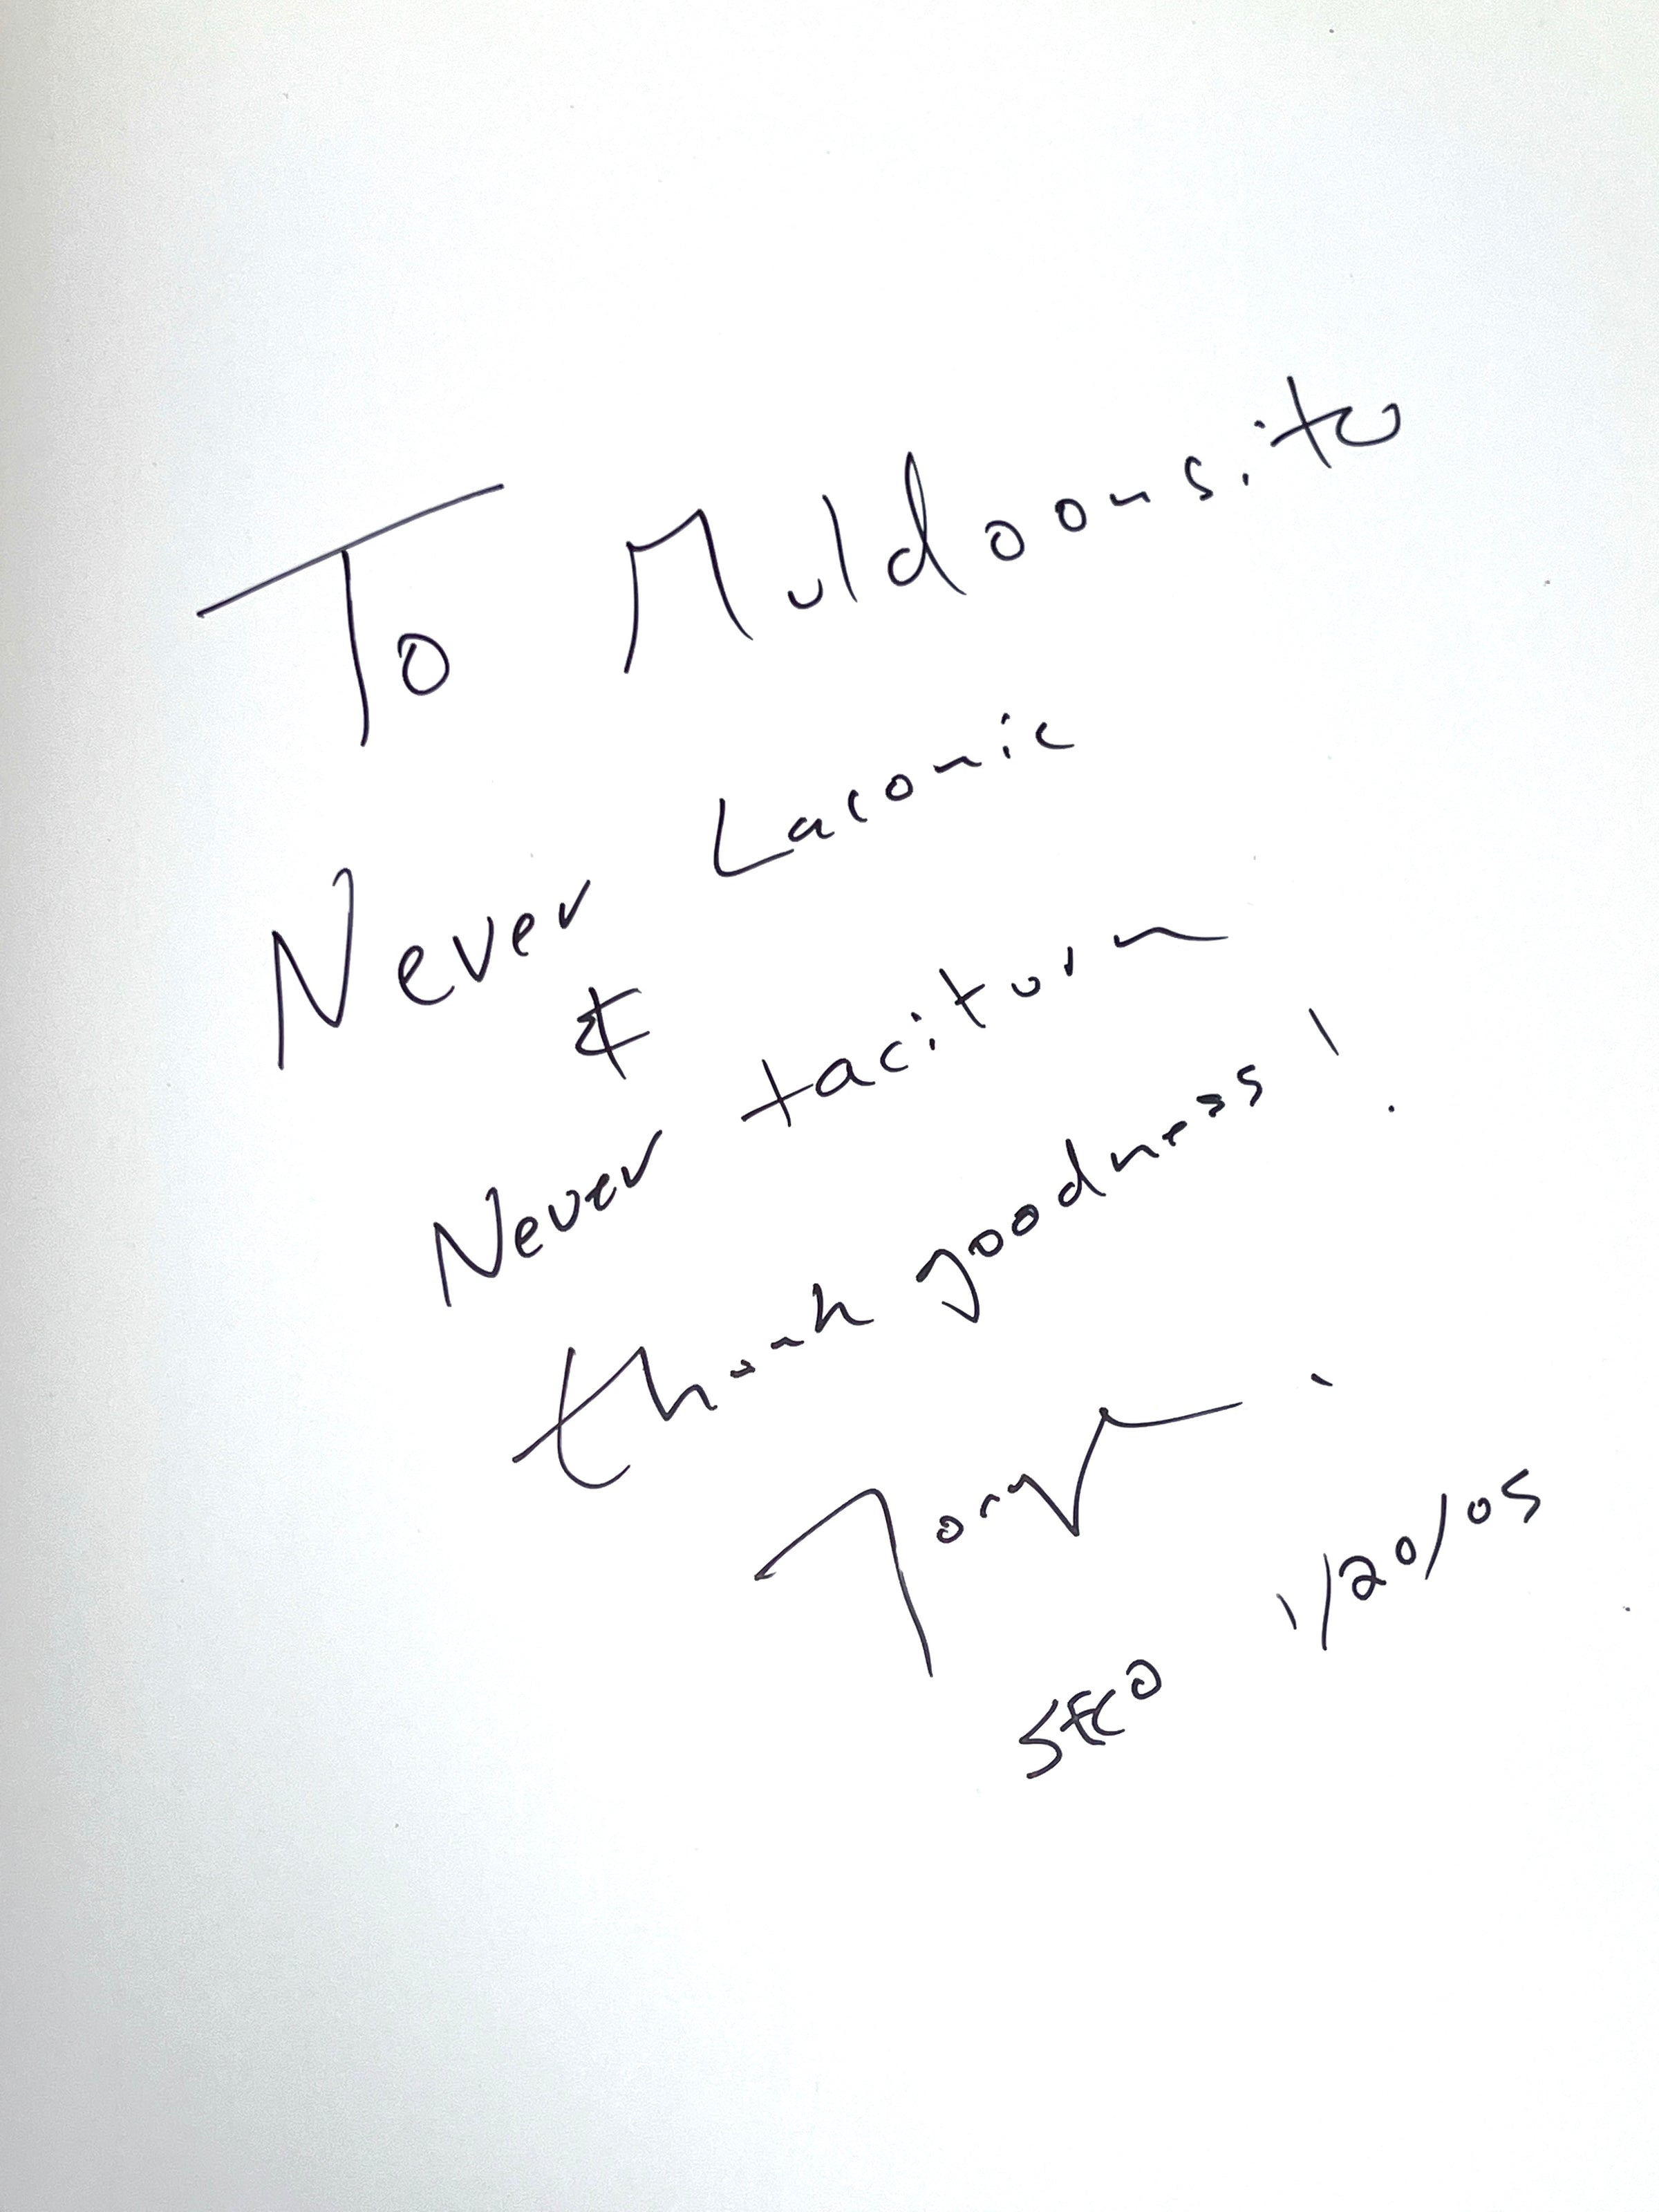 To Muldoonsito
Never Laconic
&
Never taciturn
thank goodness!
Tony
SECO 1/20/05